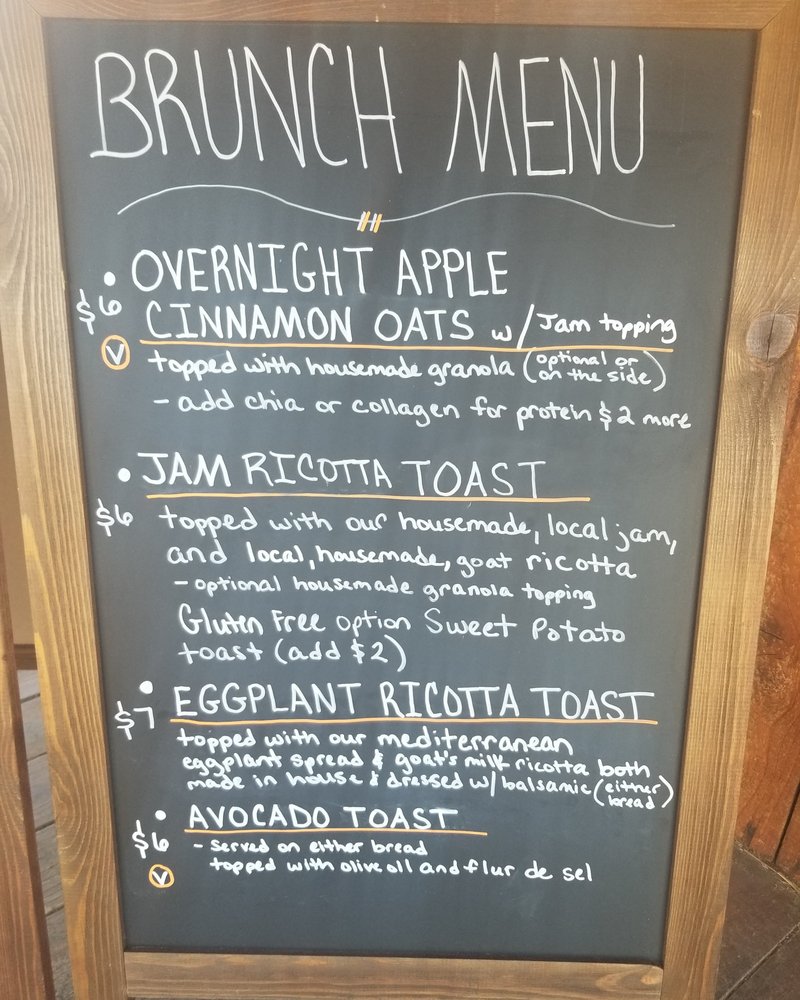 BRUNCH MENU
• OVERNIGHT APPLE
$6 CINNAMON OATS w/ Jam topping
V topped with housemade granola (optional or on the side)
- add chia or collagen for protein $2 more
• JAM RICOTTA TOAST
$6 topped with our housemade, local jam,
and local, housemade, goat ricotta
- optional housemade granola topping
Gluten Free option Sweet Potato
toast (add $2)
• EGGPLANT RICOTTA TOAST
$7 topped with our mediterranean
eggplant spread & goat's milk ricotta both
made in house & dressed w/ balsamic (either bread)
• AVOCADO TOAST
$6 - served on either bread
V topped with olive oil and flur de sel